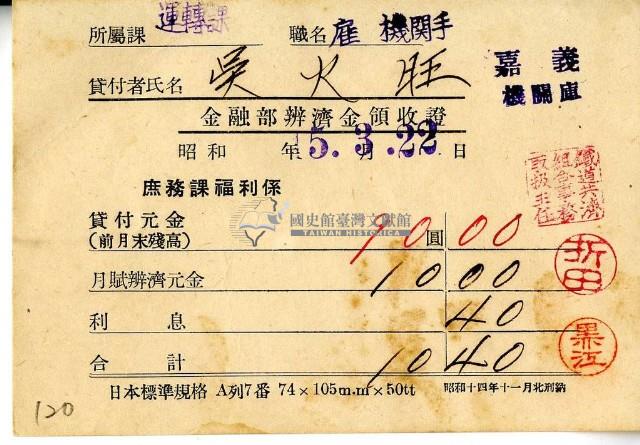 所屬課 運轉課 職名 雇 機関手
貸付者氏名 吳火旺
嘉義
機關庫
金融部辨濟金領收證
昭和 年 15.3.22 月 日
庶務課福利係
鐵道共濟
組合事務
取扱主任
貸付元金 90圓00
(前月末殘高)
國史館臺灣文獻館
TAIWAN HISTORICA
折田
月賦辨濟元金 1000
利息 40
黒江
合計 1040
日本標準規格 A列7番 74×105m.m×50tt 昭和十四年十一月北刑納
120